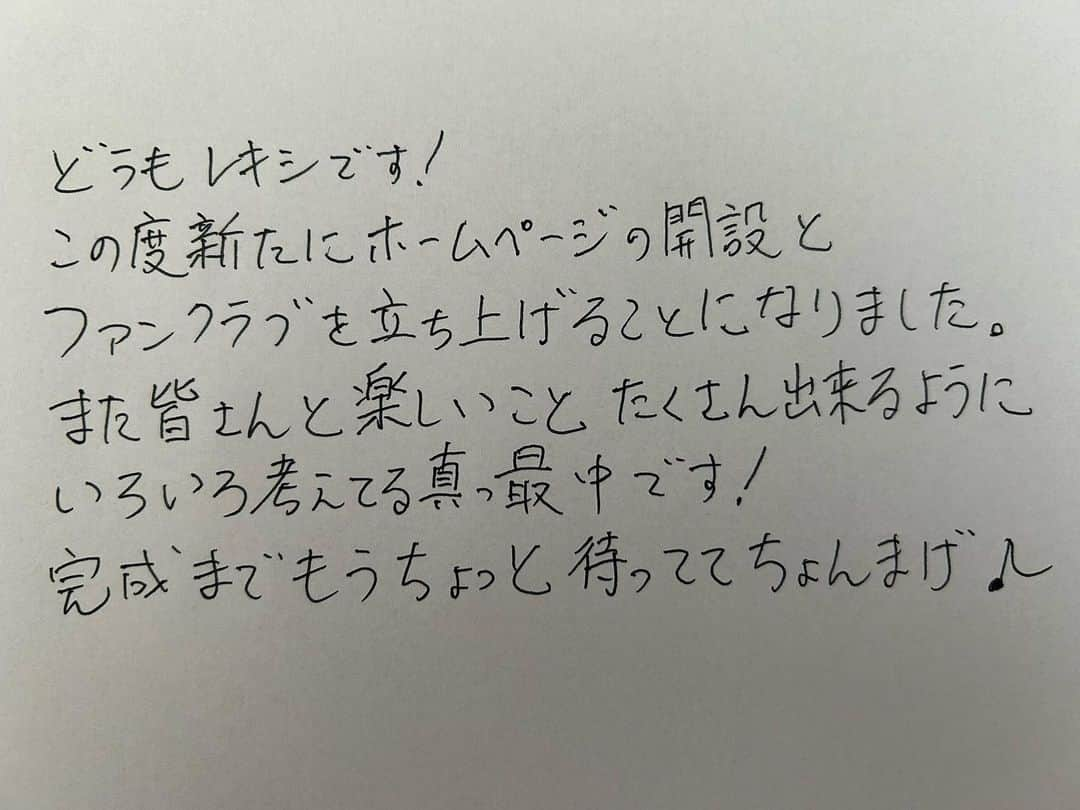 どうもレキシです!
この度新たにホームページの開設と
ファンクラブを立ち上げることになりました。
また皆さんと楽しいこと たくさん出来るように
いろいろ考えてる真っ最中です!
完成までもうちょっと待っててちょんまげ♪